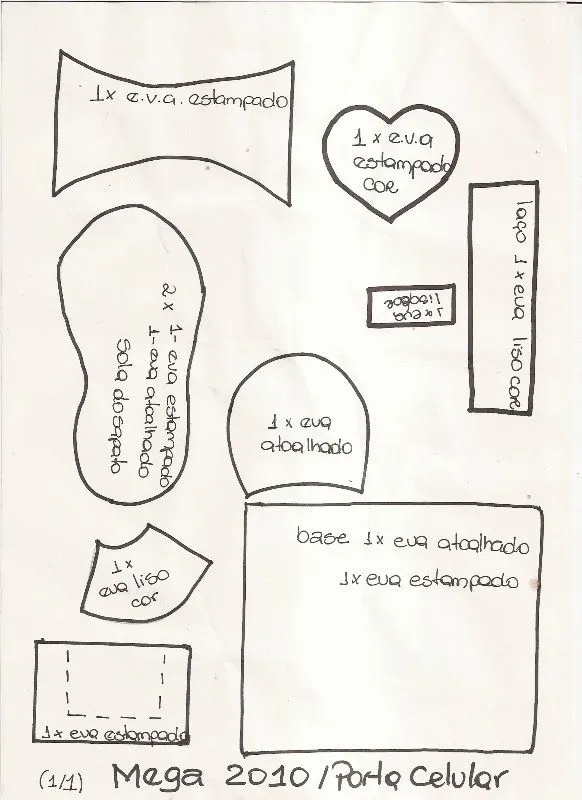 1x e.v.a. estampado
1 x e.v.a
estampado
cor
laço 1x eva liso cor
1x eva
liso cor
2x 1- eva estampado
1- eva atoalhado
Sola do sapato
1x eva
atoalhado
base 1x eva atoalhado
1x eva estampado
1x
eva liso
cor
1x eva estampado
(1/1) Mega 2010/Porta Celular